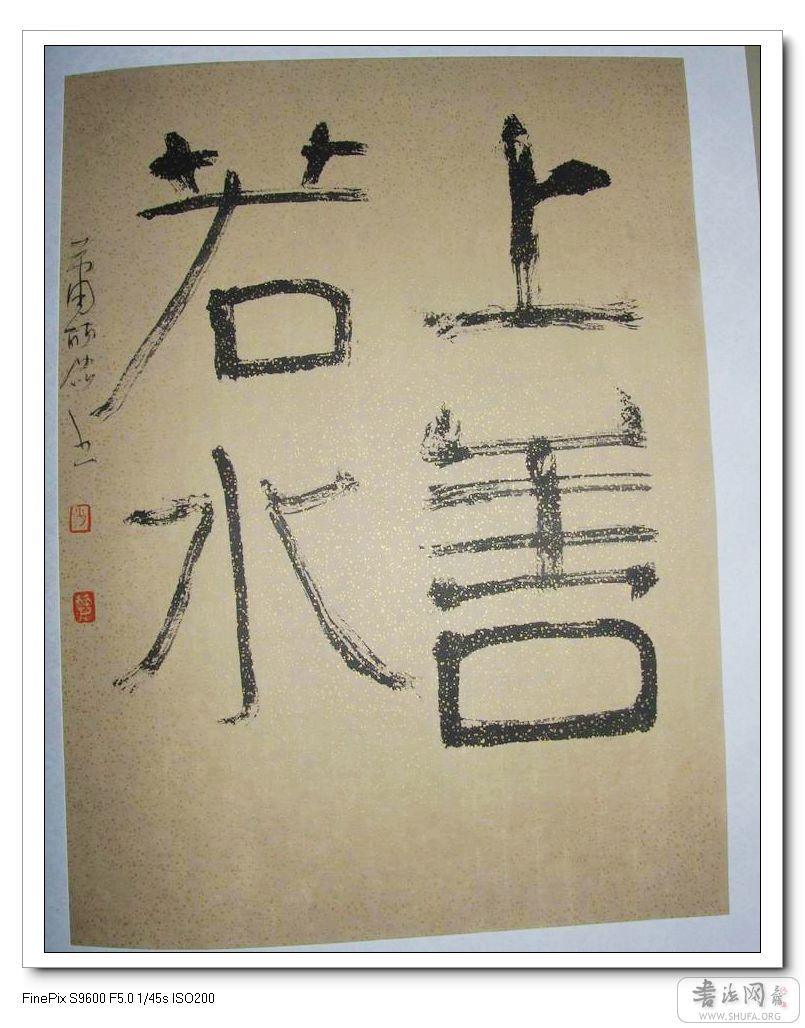 上善
若水
FinePix S9600 F5.0 1/45s ISO200
书法网
WWW.SHUFA.ORG